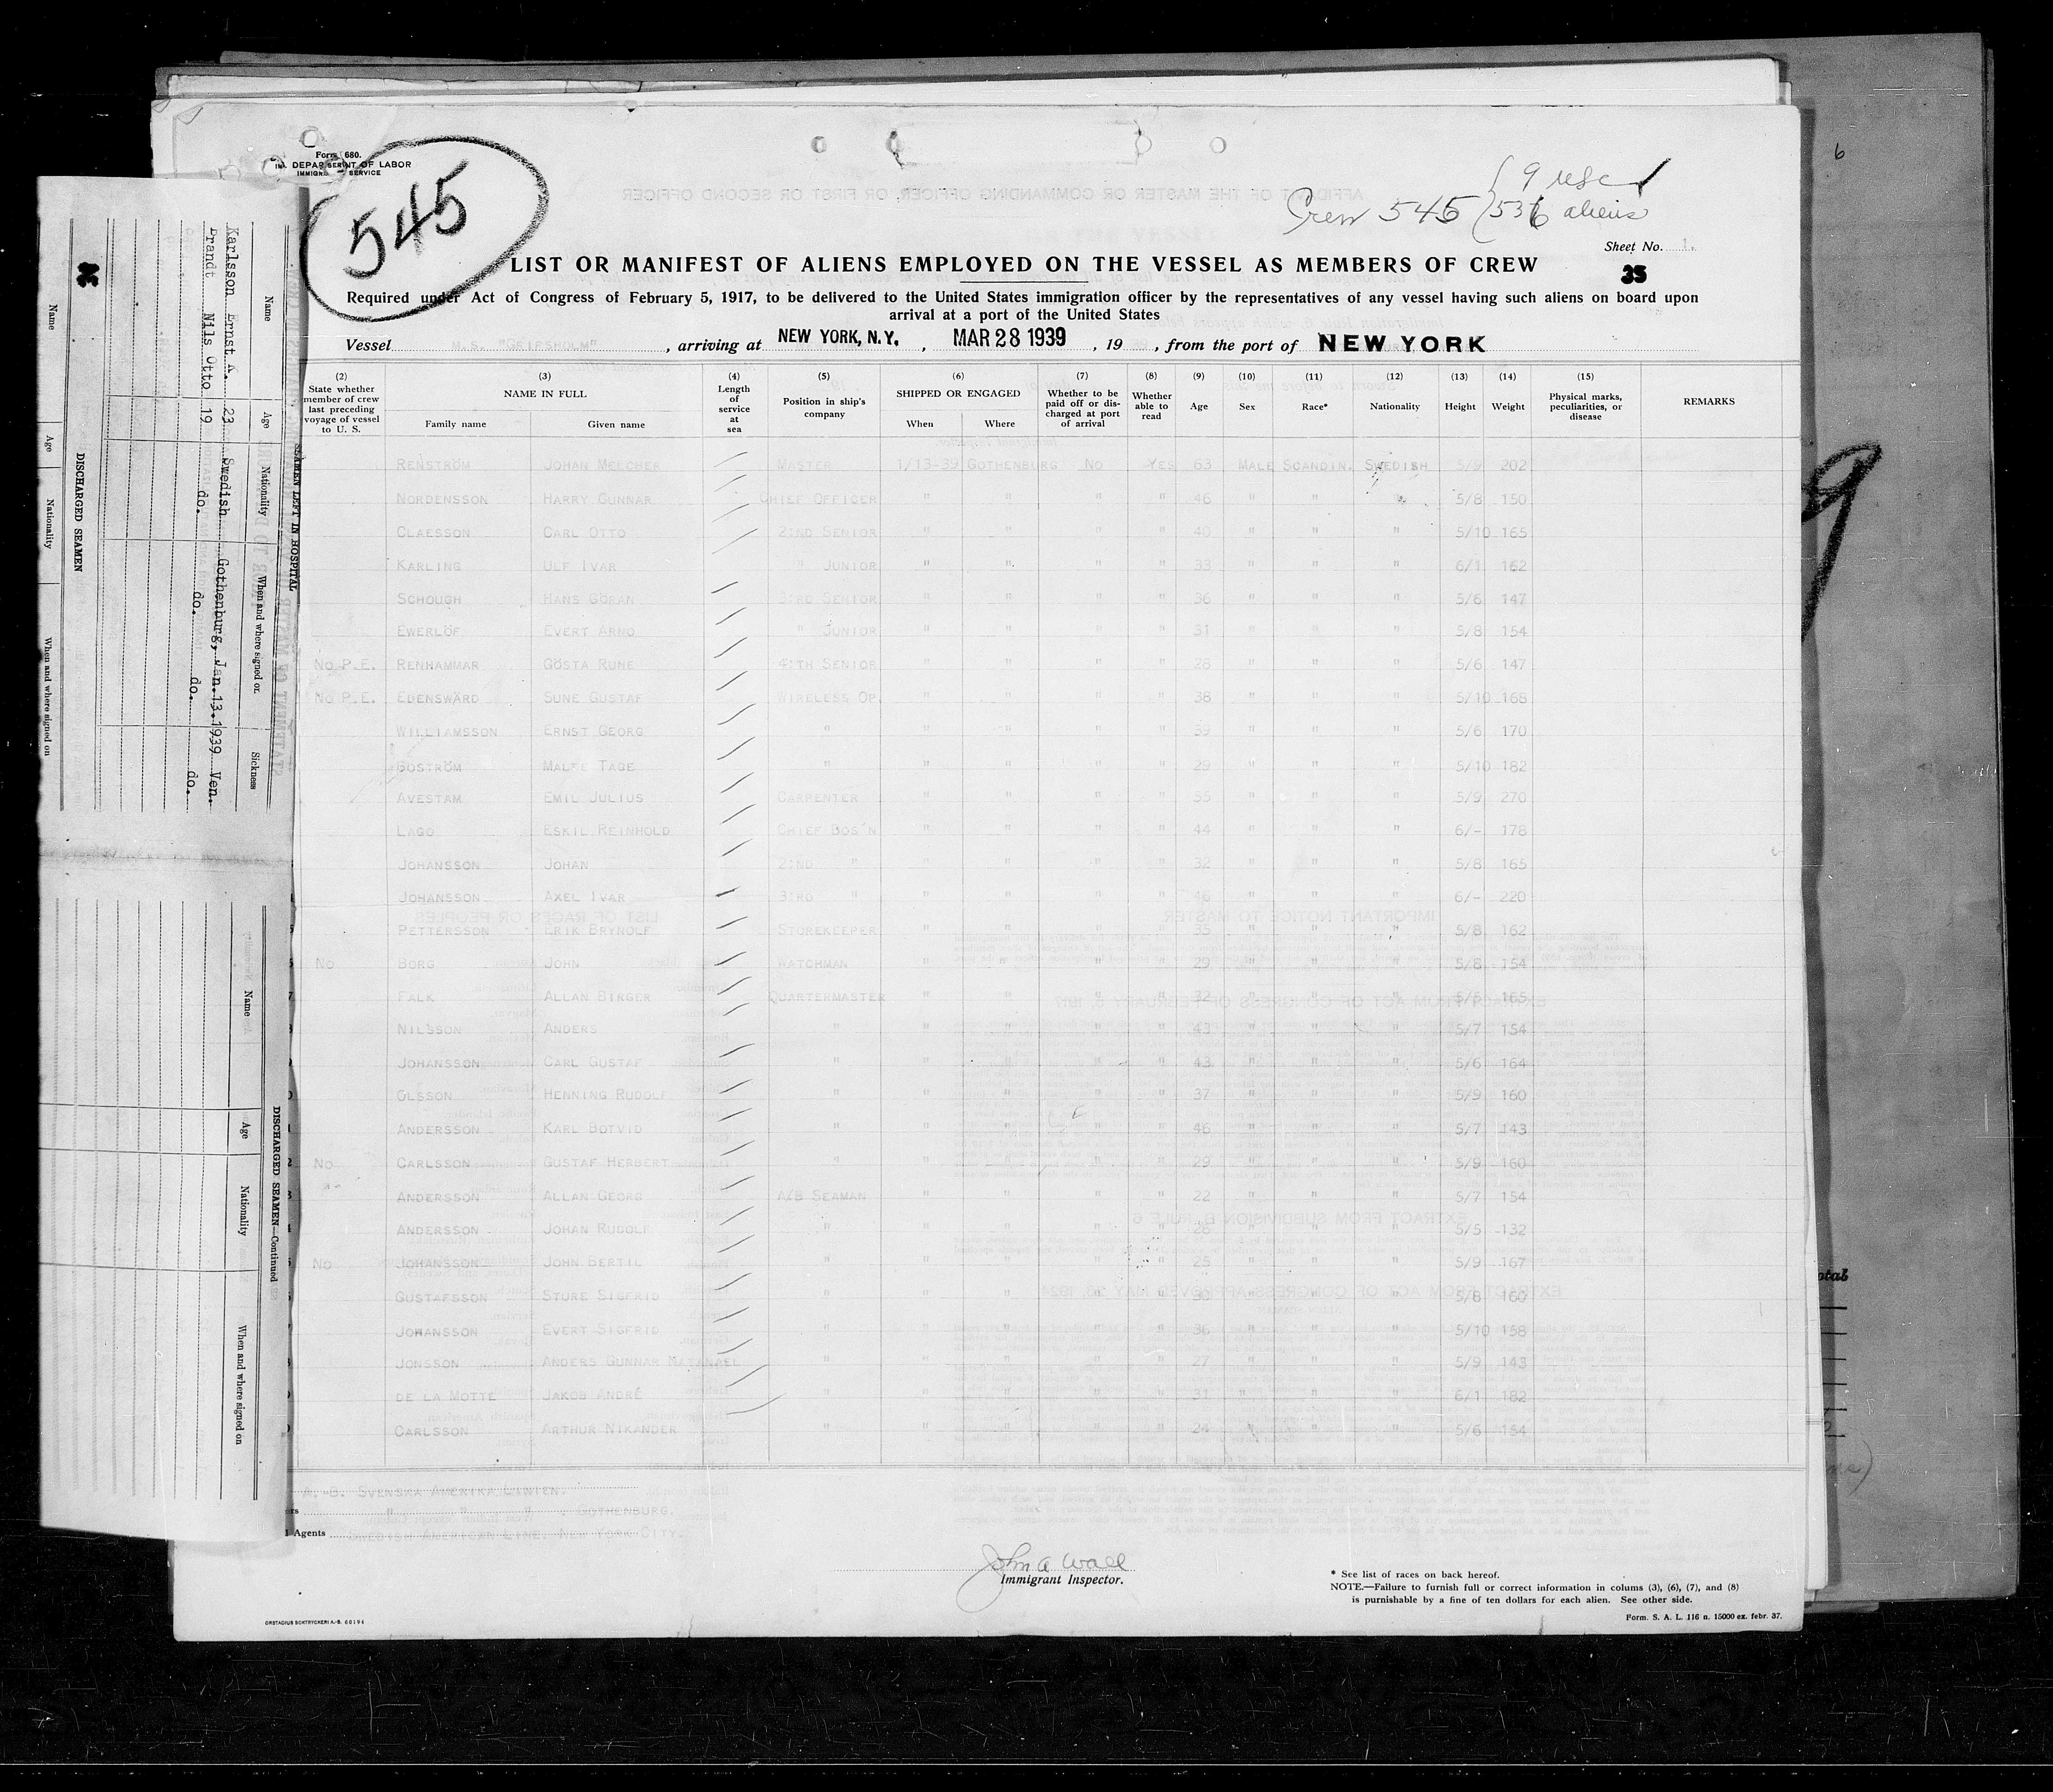 Form 680.
U.S. DEPARTMENT OF LABOR
IMMIGRATION SERVICE
545
9 uscs
Crew 545 { 536 aliens
Sheet No. 1.
35
LIST OR MANIFEST OF ALIENS EMPLOYED ON THE VESSEL AS MEMBERS OF CREW
Required under Act of Congress of February 5, 1917, to be delivered to the United States immigration officer by the representatives of any vessel having such aliens on board upon
arrival at a port of the United States
Vessel M.S. "GRIPSHOLM", arriving at NEW YORK, N.Y., MAR 28 1939, 19 , from the port of NEW YORK
(2) State whether member of crew last preceding voyage of vessel to U. S. (3) NAME IN FULL Family name Given name (4) Length of service at sea (5) Position in ship's company (6) SHIPPED OR ENGAGED When Where (7) Whether to be paid off or discharged at port of arrival (8) Whether able to read (9) Age (10) Sex (11) Race* (12) Nationality (13) Height (14) Weight (15) Physical marks, peculiarities, or disease REMARKS
RENSTRÖM JOHAN MELCHER MASTER GOTHENBURG NO YES 63 MALE SCANDIN. SWEDISH 5/9 202
NORDENSSON HARRY GUNNAR CHIEF OFFICER " " " " 46 " " " 5/8 150
CLAESSON CARL OTTO 2:ND SENIOR " " " " 40 " " " 5/10 165
KARLING ULF IVAR " JUNIOR " " " " 33 " " " 6/1 162
SCHOUGH HANS GÖRAN 3:RD SENIOR " " " " 36 " " " 5/6 147
EWERLÖF EVERT ARNO " JUNIOR " " " " 31 " " " 5/8 154
NO P.E. RENHAMMAR GÖSTA RUNE 4:TH SENIOR " " " " 28 " " " 5/6 147
NO P.E. EDENSWÄRD SUNE GUSTAF WIRELESS OP. " " " " 38 " " " 5/10 168
WILLIAMSSON ERNST GEORG " " " " " 39 " " " 5/6 170
BOSTRÖM MALTE TAGE " " " " " 29 " " " 5/10 182
AVESTAM EMIL JULIUS CARPENTER " " " " 55 " " " 5/9 270
LAGO ESKIL REINHOLD CHIEF BOS'N " " " " 44 " " " 6/- 178
JOHANSSON JOHAN 2:ND " " " " " 32 " " " 5/8 165
JOHANSSON AXEL IVAR 3:RD " " " " " 46 " " " 6/- 220
PETTERSSON ERIK BRYNOLF STOREKEEPER " " " " 35 " " " 5/8 162
NO BORG JOHN WATCHMAN " " " " 29 " " " 5/8 154
FALK ALLAN BIRGER QUARTERMASTER " " " " 32 " " " 165
NILSSON ANDERS " " " " " 43 " " " 5/7 154
JOHANSSON CARL GUSTAF " " " " " 43 " " " 5/6 164
OLSSON HENNING RUDOLF " " " " " 37 " " " 5/9 160
ANDERSSON KARL BOTVID " " " " " 46 " " " 5/7 143
NO CARLSSON GUSTAF HERBERT " " " " " 29 " " " 5/9 160
ANDERSSON ALLAN GEORG A/B SEAMAN " " " " 22 " " " 5/7 154
ANDERSSON JOHAN RUDOLF " " " " " 26 " " " 5/5 132
NO JOHANSSON JOHN BERTIL " " " " " 25 " " " 5/9 167
GUSTAFSSON STURE SIGFRID " " " " " 30 " " " 5/8 160
JOHANSSON EVERT SIGFRID " " " " " 36 " " " 5/10 158
JONSSON ANDERS GUNNAR NATANAEL " " " " " 27 " " " 5/9 143
DE LA MOTTE JAKOB ANDRÉ " " " " " 31 " " " 6/1 182
CARLSSON ARTHUR NIKANDER " " " " " 24 " " " 5/6 154
A.-B. SVENSKA AMERIKA LINIEN.
" " " GOTHENBURG.
Agents SWEDISH AMERICAN LINE. NEW YORK CITY.
John A Wall
Immigrant Inspector.
* See list of races on back hereof.
NOTE.—Failure to furnish full or correct information in colums (3), (6), (7), and (8)
is punishable by a fine of ten dollars for each alien. See other side.
Form. S. A. L. 116 n. 15000 ex. febr. 37.
ORSTADIUS BOKTRYCKERI A.-B. 60194
SEAMEN LEFT IN HOSPITAL
Name Age Nationality When and where signed on Sickness
Karlsson Ernst A. 23 Swedish Gothenburg, Jan.13.1939 Ven.
Brandt Nils Otto 19 do. do. do. do.
DISCHARGED SEAMEN
Name Age Nationality When and where signed on
DISCHARGED SEAMEN—Continued
Name Age Nationality When and where signed on
6
9
otal